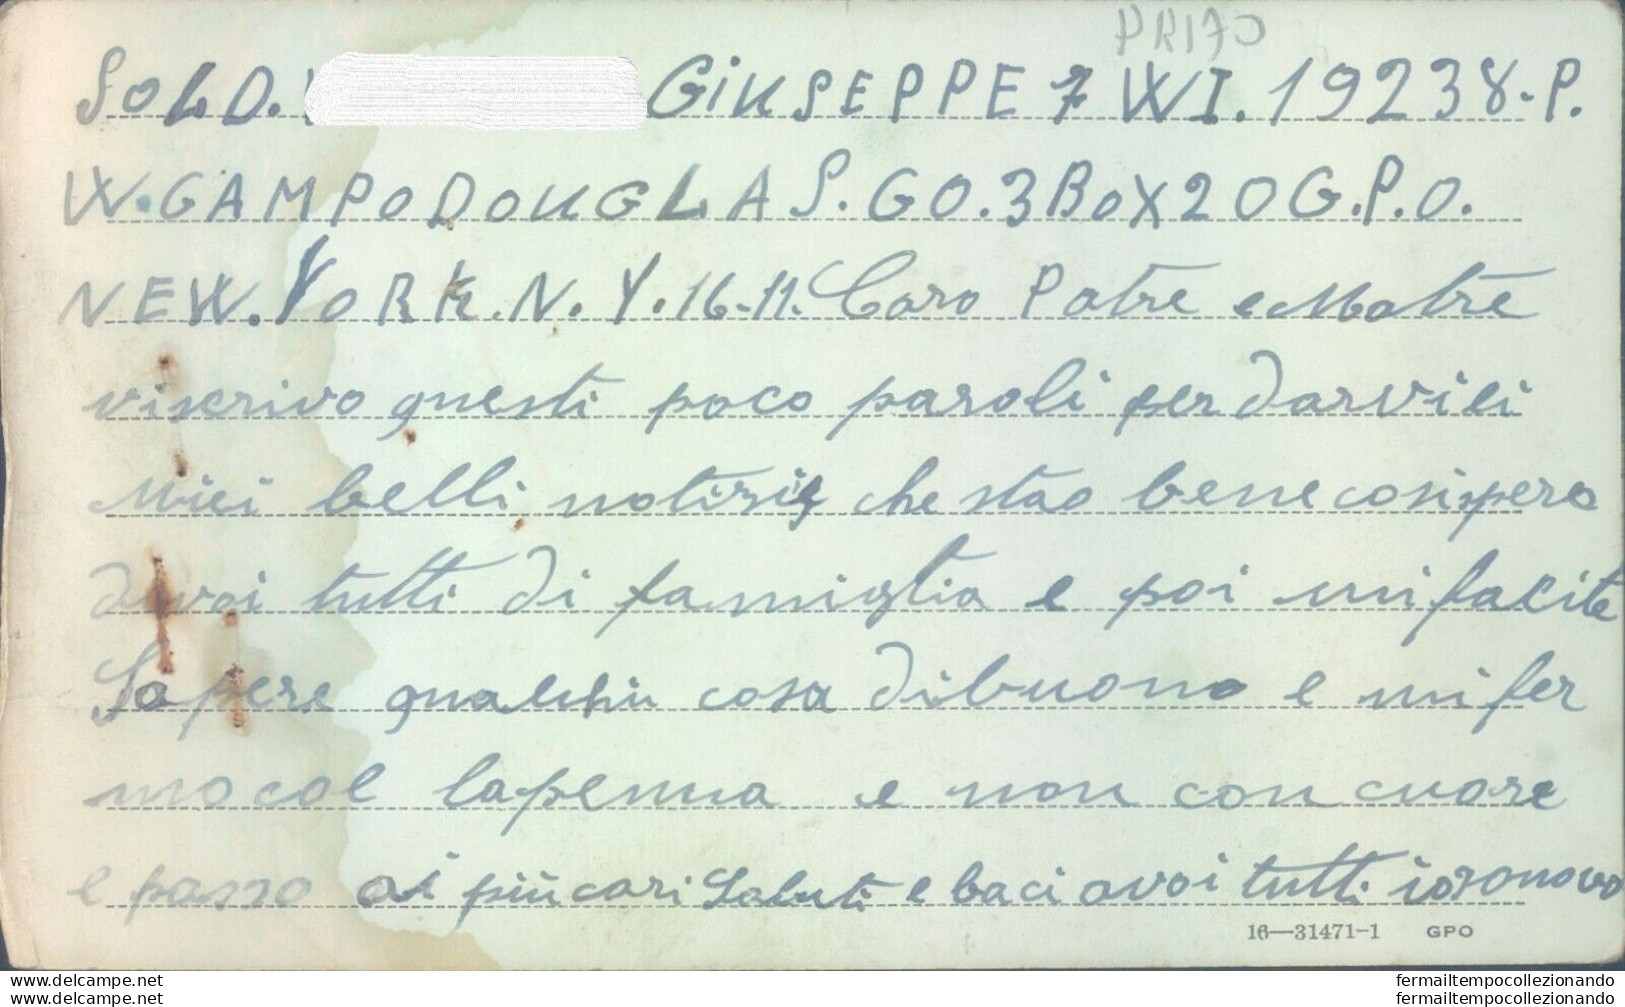 PRIFO
SOLD. GiUSEPPE 7 WI. 19238-P.
W. CAMPO DOUGLAS. GO. 3 BOX 20 G.P.O.
NEW. YORK. N. Y. 16-11. Caro Patre e Matre
vi scrivo questi poco paroli per darvi ei
miei belli notizie che stao bene cosi spero
di voi tutti di famiglia e poi mi facite
Sapere qualchiu cosa di buono e mi fer
mo col la penna e non con cuore
e passo ai più cari Saluti e baci a voi tutti io sono vo
16—31471-1 GPO
fermailtempocollezionando fermailtempocollezionando
fermailtempocollezionando fermailtempocollezionando